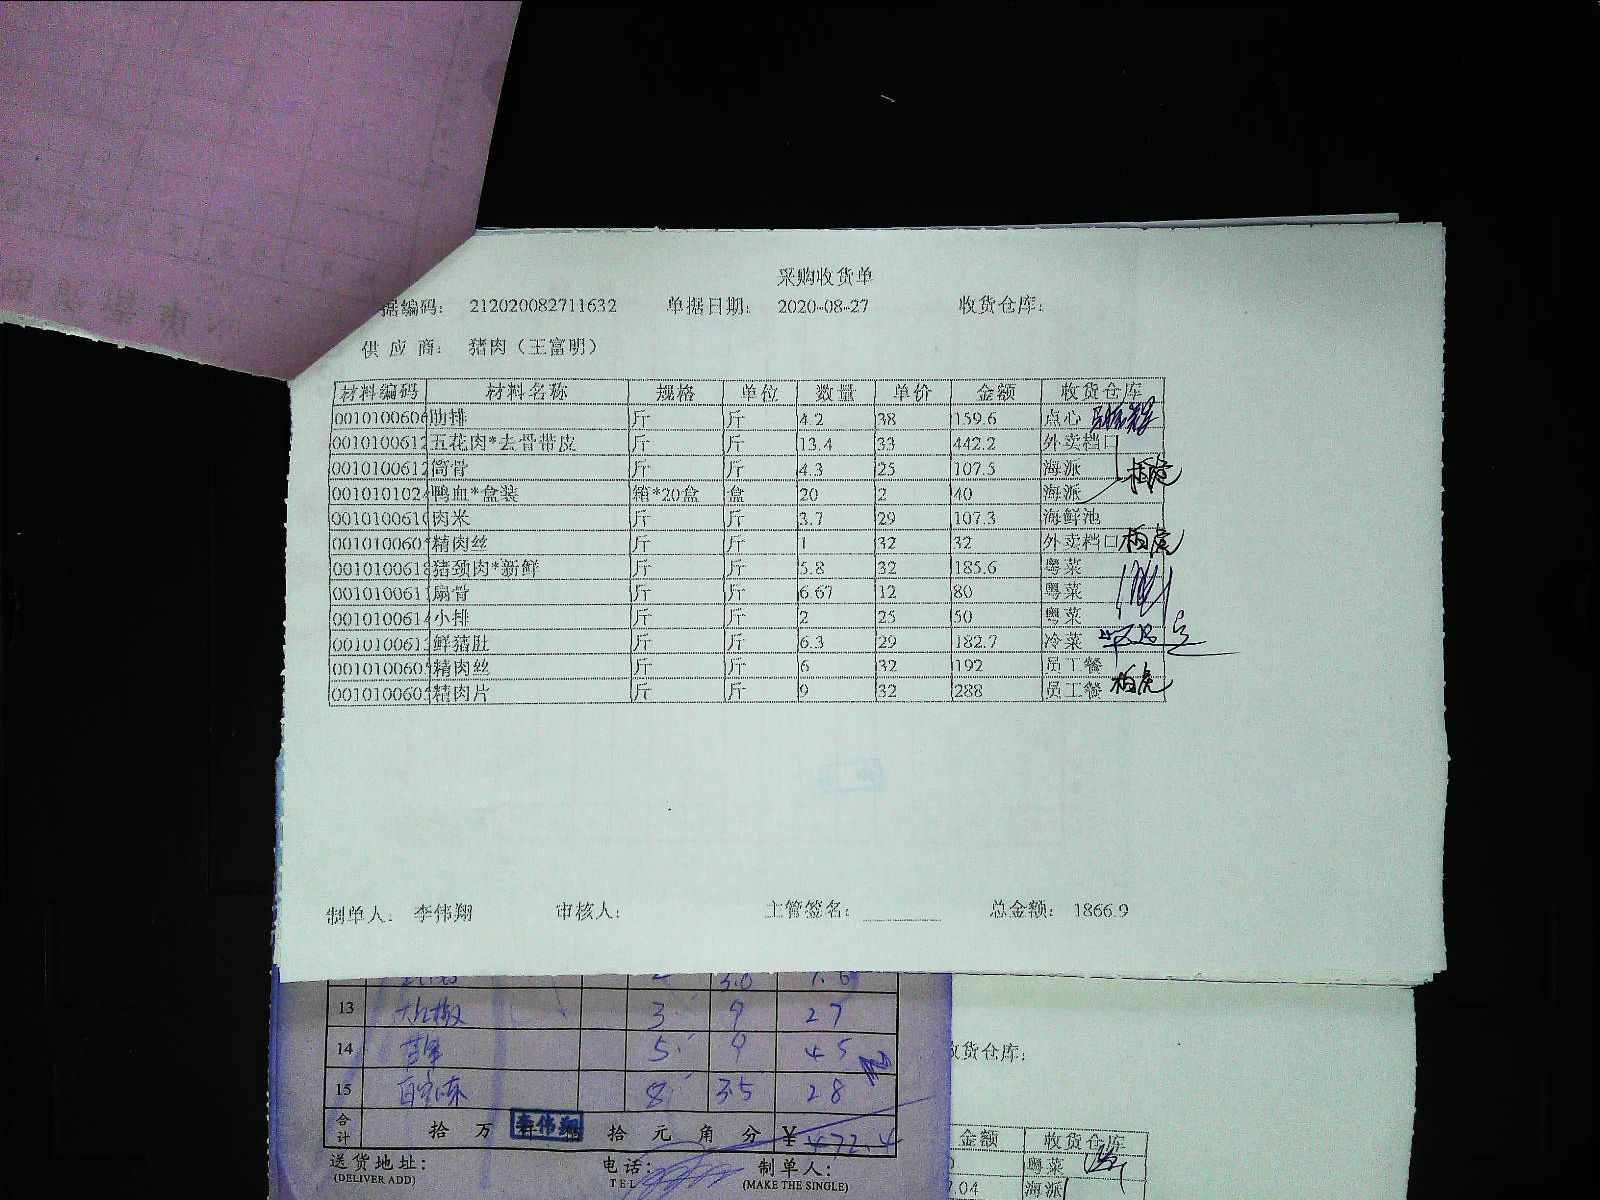 采购收货单
据编码： 212020082711632 单据日期： 2020-08-27 收货仓库：
供 应 商： 猪肉（王富明）
材料编码 材料名称 规格 单位 数量 单价 金额 收货仓库
0010100606 肋排 斤 斤 4.2 38 159.6 点心
0010100612 五花肉*去骨带皮 斤 斤 13.4 33 442.2 外卖档口
0010100612 筒骨 斤 斤 4.3 25 107.5 海派
0010101024 鸭血*盒装 箱*20盒 盒 20 2 40 海派
0010100610 肉米 斤 斤 3.7 29 107.3 海鲜池
001010060 精肉丝 斤 斤 1 32 32 外卖档口 柏虎
0010100618 猪颈肉*新鲜 斤 斤 5.8 32 185.6 粤菜
001010061 扇骨 斤 斤 6.67 12 80 粤菜
0010100614 小排 斤 斤 2 25 50 粤菜
001010061 鲜猪肚 斤 斤 6.3 29 182.7 冷菜
001010060 精肉丝 斤 斤 6 32 192 员工餐
001010060 精肉片 斤 斤 9 32 288 员工餐 柏虎
制单人： 李伟翔 审核人： 主管签名： 总金额： 1866.9
13 3 9 27
14 5 9 45
15 8 3.5 28
合计 拾 万 仟 佰 拾 元 角 分 ¥ 472.4
李伟翔
送货地址： 电话： 制单人：
(DELIVER ADD) TEL (MAKE THE SINGLE)
收货仓库：
金额 收货仓库
粤菜
7.04 海派